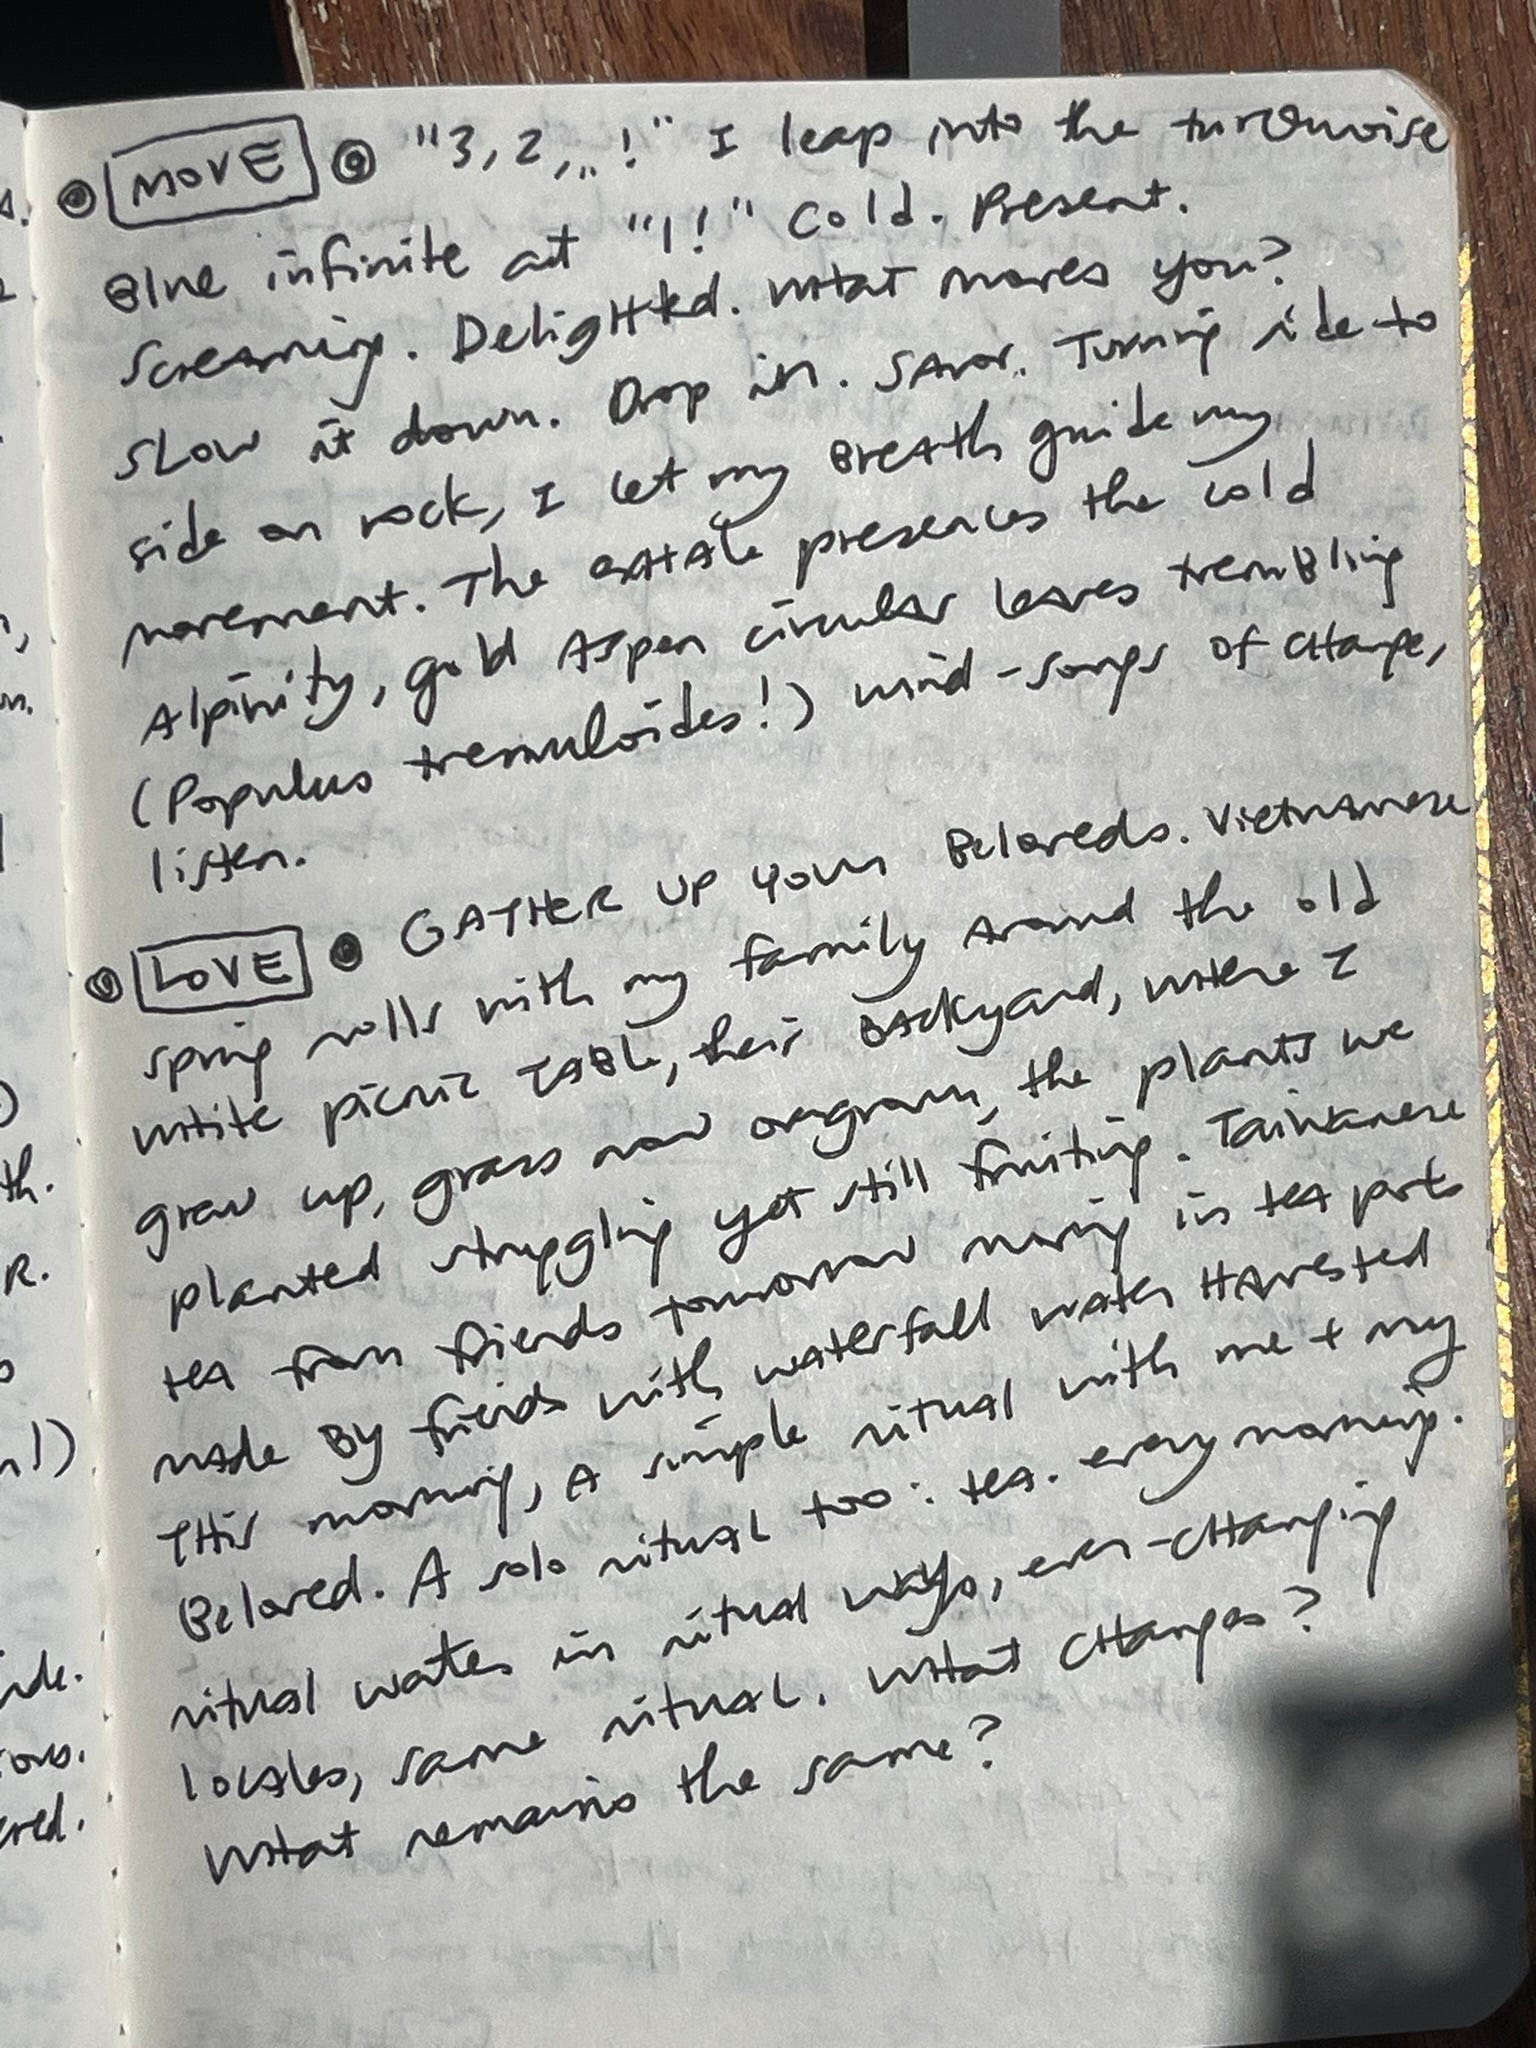 MOVE "3, 2,..!" I leap into the turquoise
Blue infinite at "1!" Cold. Present.
Screaming. Delighted. What moves you?
Slow it down. Drop in. Savor. Turning side to
side on rock, I let my Breath guide my
movement. The exhale presences the cold
Alpinity, gold Aspen circular leaves trembling
(Populus tremuloides!) wind-songs of change,
listen.
LOVE GATHER UP your Beloveds. Vietnamese
spring rolls with my family around the old
white picnic table, their Backyard, where I
grew up, grass now overgrown, the plants we
planted struggling yet still fruiting. Taiwanese
tea from friends tomorrow morning in tea pots
made By friends with waterfall water Harvested
This morning, A simple ritual with me + my
Beloved. A solo ritual too: tea. every morning.
ritual water in ritual ways, ever-changing
locales, same ritual. What changes?
What remains the same?
th.
R.